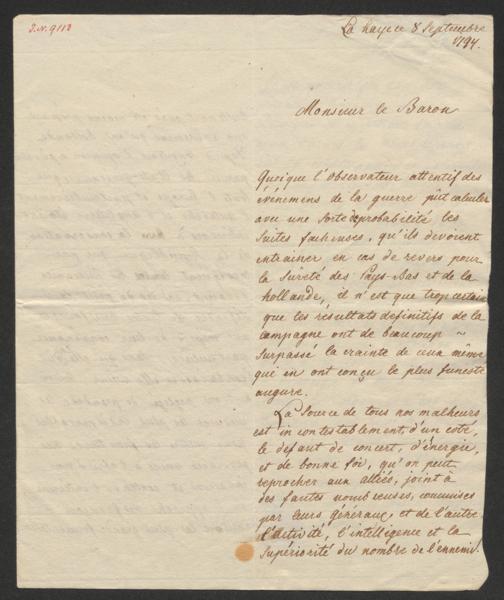 I.N. 9118
La haye ce 8 Septembre
1794.
Monsieur le Baron
Quoique l'Observateur attentif des
événemens de la guerre pût calculer
avec une Sorte de probabilité les
Suites facheuses, qu'ils devoient
entrainer en cas de revers pour
la Sûreté des Pays-Bas et de la
hollande, il n'est que trop certain
que les résultats definitifs de la
campagne ont de beaucoup ~
Surpassé la crainte de ceux même
qui en ont conçu le plus funeste
augure.
La Source de tous nos malheurs
est incontestablement d'un coté,
le défaut de concert, d'énergie,
et de bonne foi, qu'on peut
reprocher aux alliés, joint à
des fautes nombreuses, commises
par leurs généraux, et de l'autre
l'activité, l'intelligence et la
Supériorité du nombre de l'ennemi.